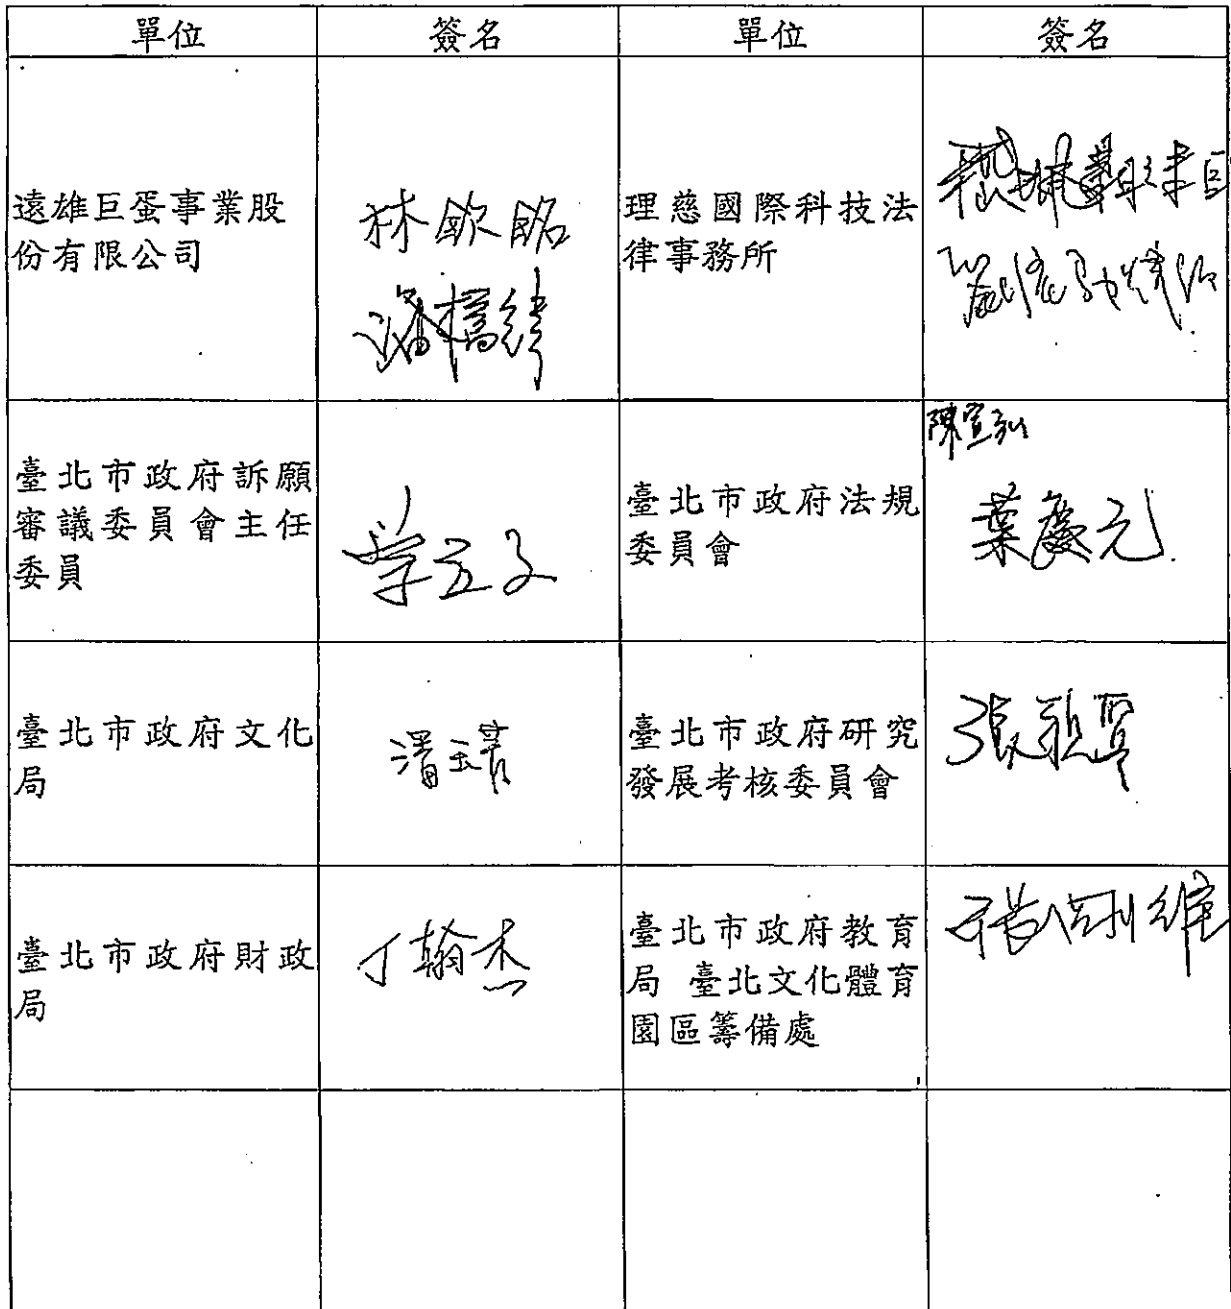 單位 簽名 單位 簽名
遠雄巨蛋事業股
份有限公司
林欽銘
理慈國際科技法
律事務所
臺北市政府訴願
審議委員會主任
委員
臺北市政府法規
委員會
陳宣弘
葉慶元
臺北市政府文化
局
臺北市政府研究
發展考核委員會
臺北市政府財政
局
丁翰杰
臺北市政府教育
局 臺北文化體育
園區籌備處